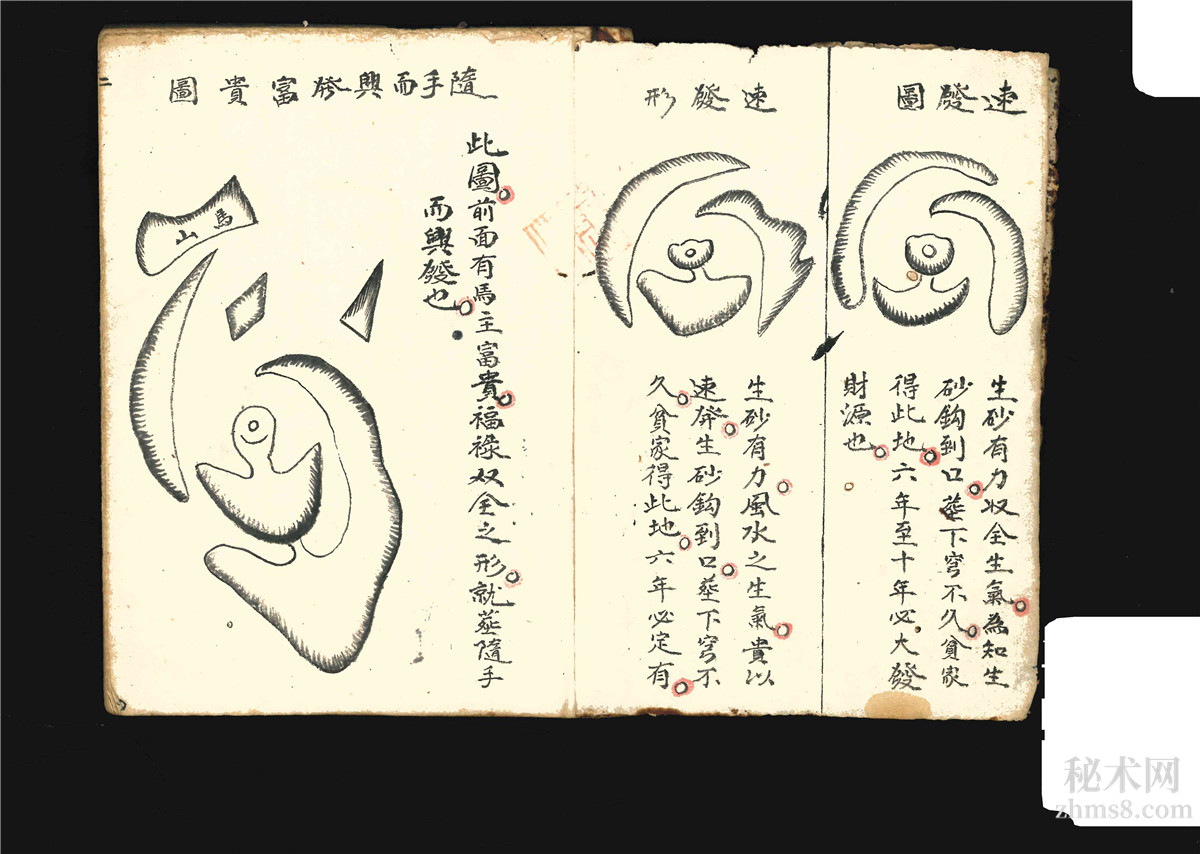 速發圖
生砂有力収全生氣為知生
砂鈎到口塟下穹不久貧家
得此地六年至十年必大發
財源也
速發形
生砂有力風水之生氣貴以
速發生砂鈎到口塟下穹不
久貧家得此地六年必定有
隨手而興發富貴圖
此圖前面有馬主富貴福祿奴全之形就塟隨手
而興發也
馬山
二
秘术网
zhms8.com